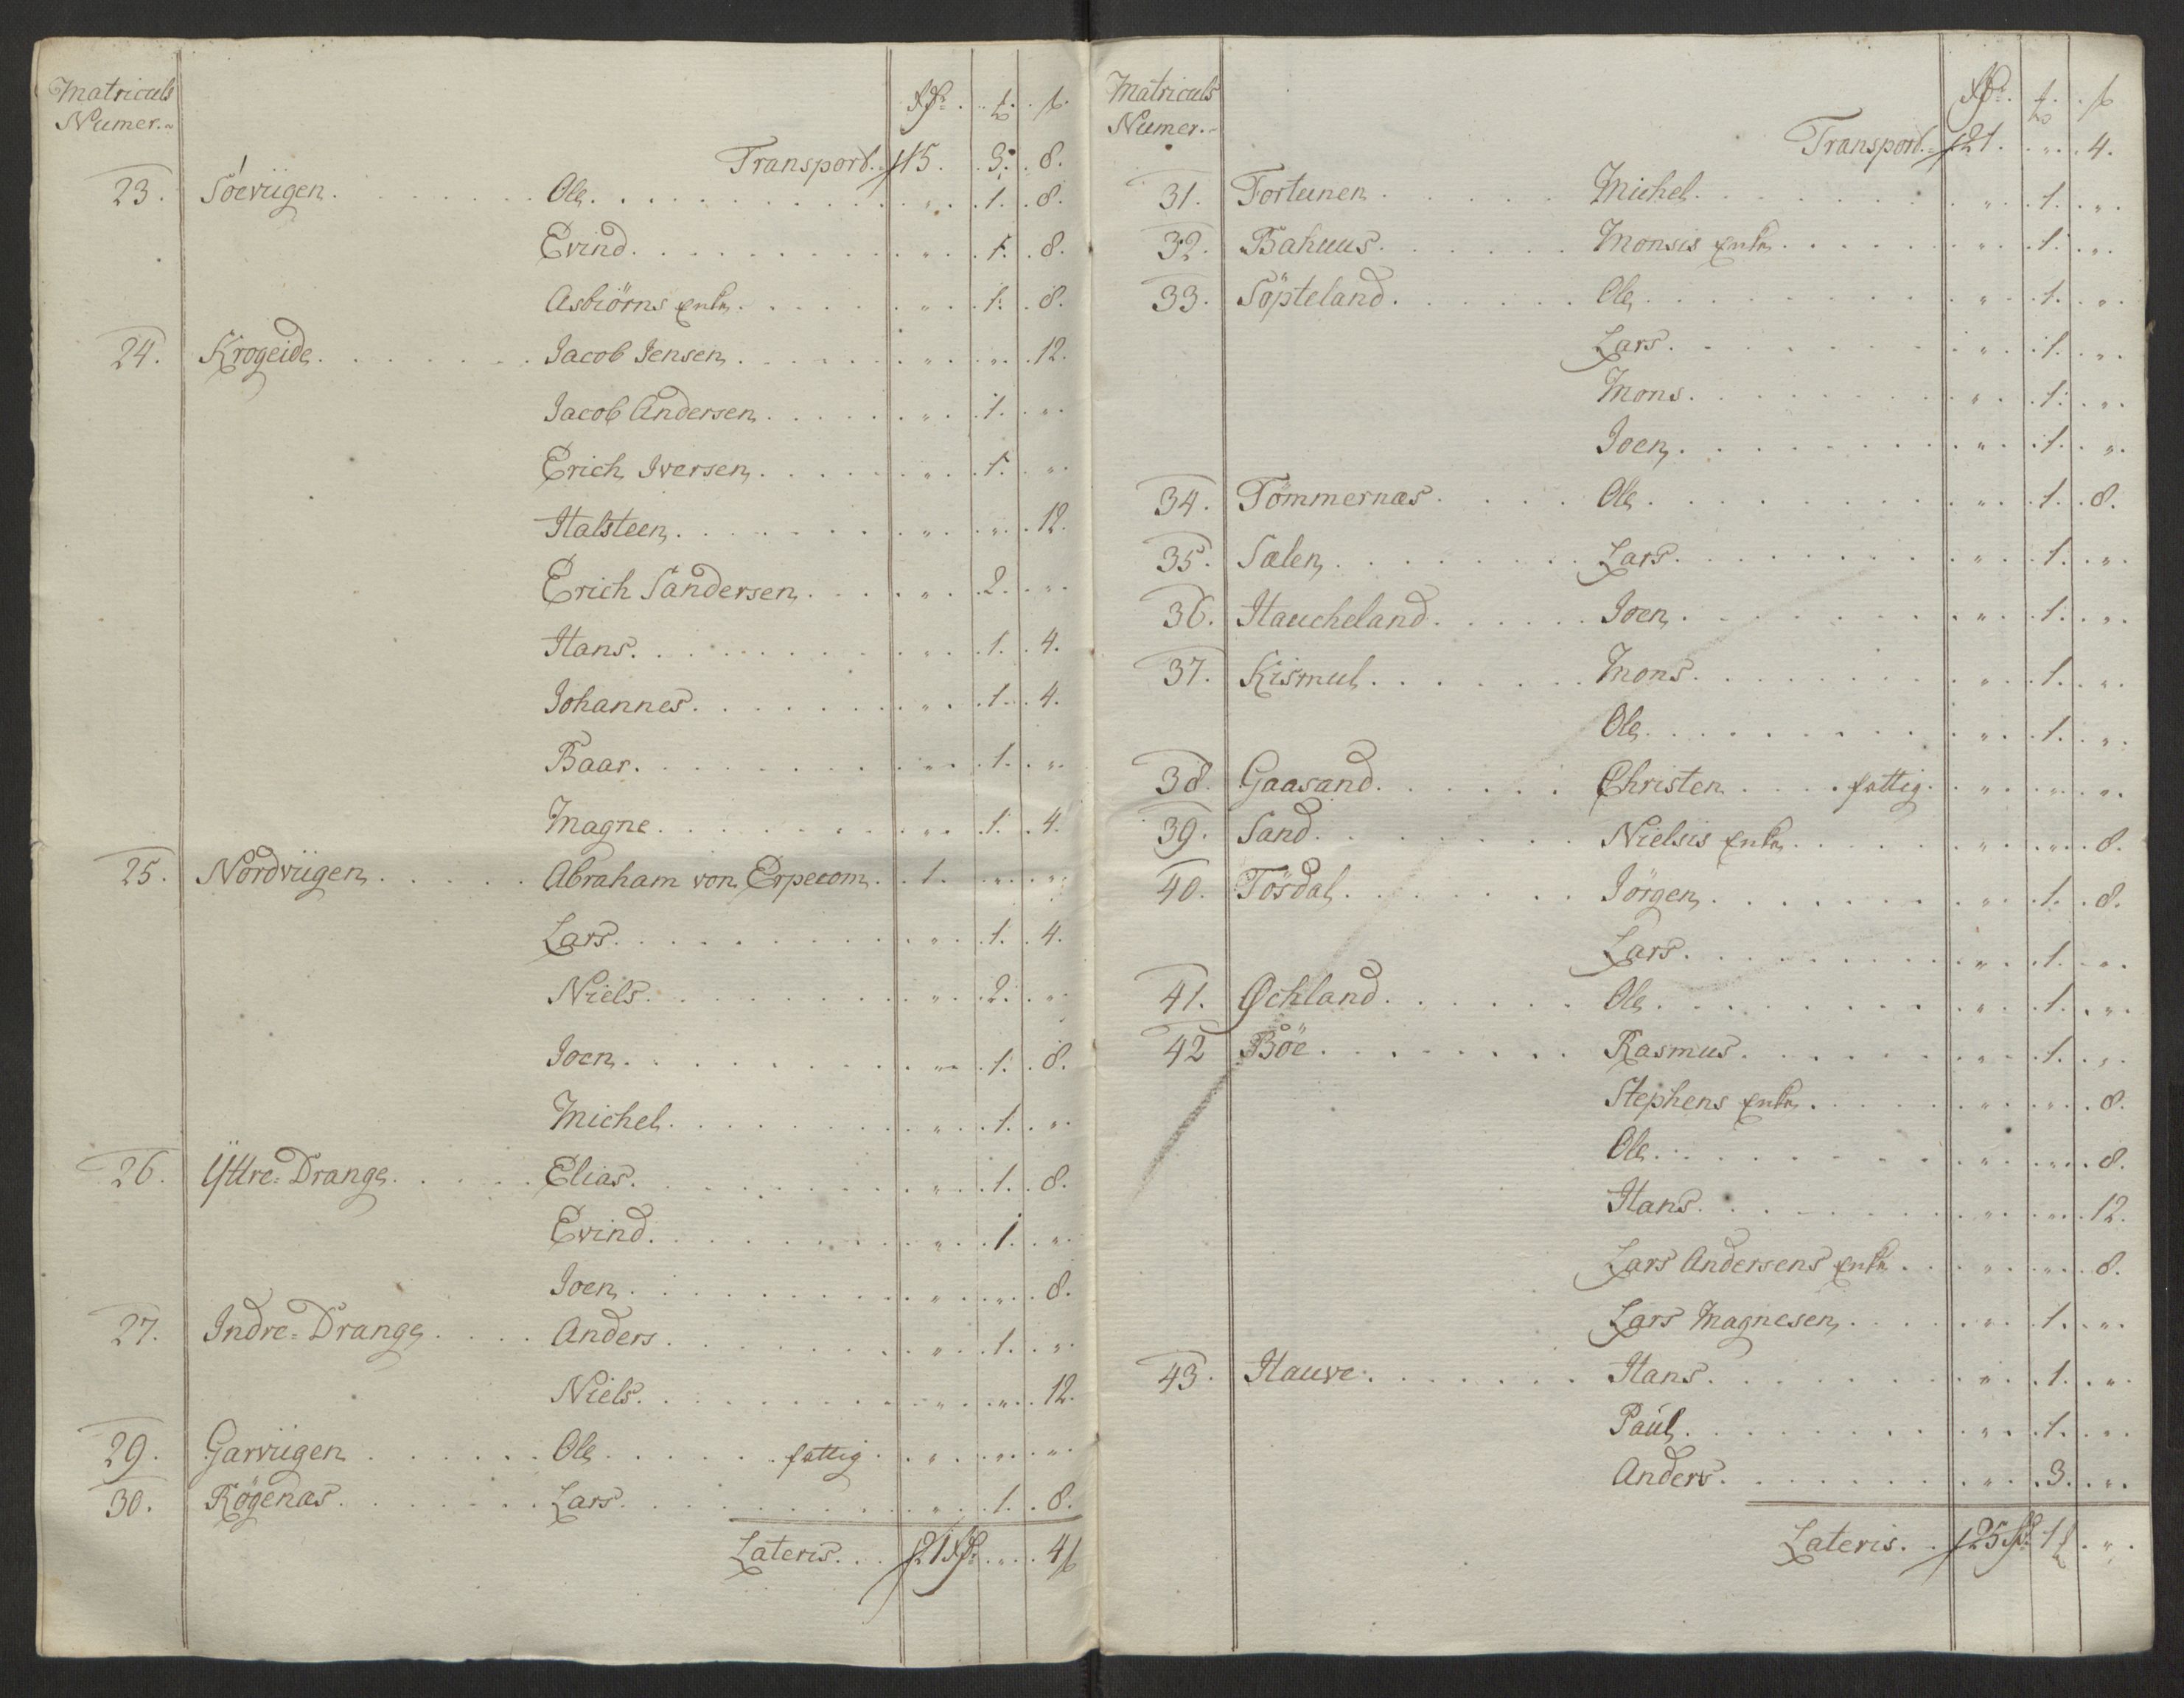 Matriculs
Numer. Rd. ₰. ß.
Transport. 115. 3. 8.
23. Söeviigen. Ole. „. 1. 8.
Evind. „. 1. 8.
Asbiörns Enke. „. 1. 8.
24. Krogeide. Jacob Jensen. „. „. 12.
Jacob Andersen. „. 1. „.
Erich Iversen. „. 1. „.
Halsteen. „. „. 12.
Erich Sandersen. „. 2. „.
Hans. „. 1. 4.
Johannes. „. 1. 4.
Baar. „. 1. „.
Magne. „. 1. 4.
25. Nordviigen. Abraham von Erpecom. 1. „. „.
Lars. „. 1. 4.
Niels. „. 2. „.
Joen. „. 1. 8.
Michel. „. 1. „.
26. Yttre=Drange. Elias. „. 1. 8.
Evind. „. 1. „.
Joen. „. „. 8.
27. Indre=Drange. Anders. „. 1. „.
Niels. „. „. 12.
29. Garviigen. Ole. fattig. „. „. „.
30. Rögenæs. Lars. „. 1. 8.
Lateris. 121 Rd. „. 4 ß
Matriculs
Numer. Rd. ₰. ß
Transport. 121. „. 4.
31. Fortunen. Michel. „. 1. „.
32. Bahuus. Monsis Enke. „. 1. „.
33. Söpteland. Ole. „. 1. „.
Lars. „. 1. „.
Mons. „. 1. „.
Joen. „. 1. „.
34. Tömmernæs. Ole. „. 1. 8.
35. Sælen. Lars. „. 1. „.
36. Haucheland. Joen. „. 1. „.
37. Kismul. Mons. „. 1. „.
Ole. „. 1. „.
38. Gaasand. Christen. fattig. „. „. „.
39. Sand. Nielsis Enke. „. „. 8.
40. Tösdal. Jörgen. „. 1. 8.
Lars. „. 1. „.
41. Øchland. Ole. „. 1. „.
42 Böe. Rasmus. „. 1. „.
Stephens Enke. „. „. 8.
Ole. „. „. 8.
Hans. „. „. 12.
Lars Andersens Enke. „. „. 8.
Lars Magnesen. „. 1. „.
43. Hauve. Hans. „. 1. „.
Paul. „. 1. „.
Anders. „. 3. „.
Lateris. 125 Rd. 1 ₰. „.